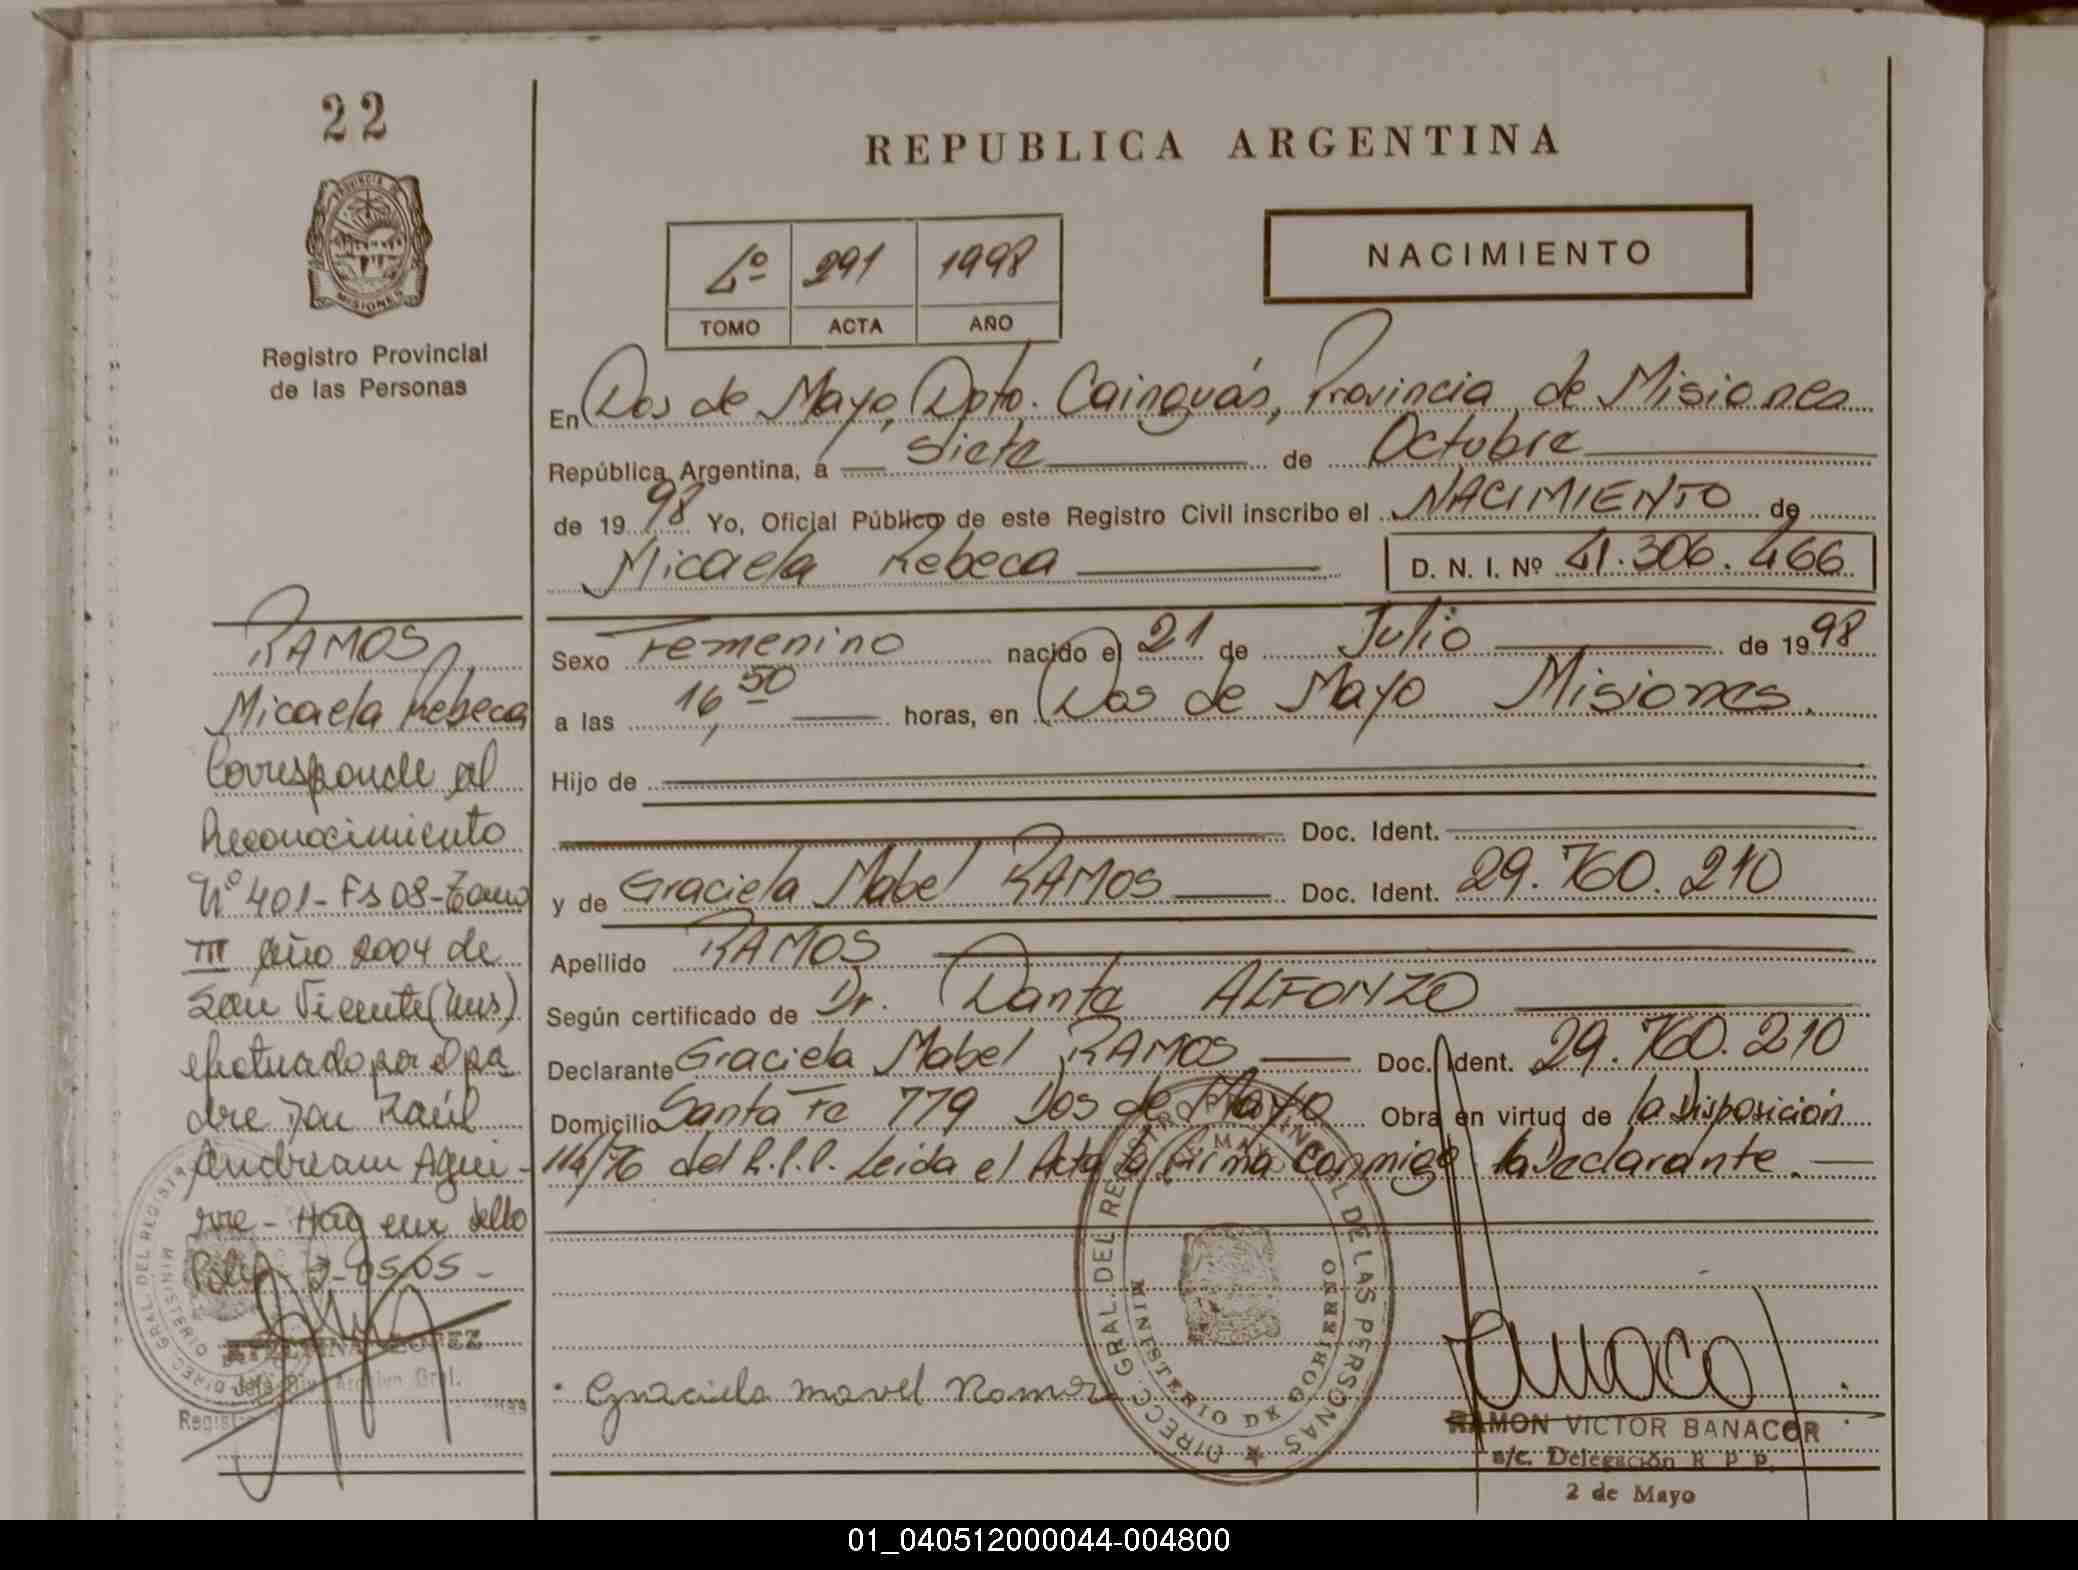 22
PROVINCIA DE
MISIONES
Registro Provincial
de las Personas
REPUBLICA ARGENTINA
4º 291 1998
TOMO ACTA AÑO
NACIMIENTO
En Dos de Mayo, Dpto. Cainguás, Provincia de Misiones
República Argentina, a siete de Octubre
de 1998 Yo, Oficial Público de este Registro Civil inscribo el NACIMIENTO de
Micaela Rebeca D. N. I. Nº 41.306.466
Sexo Femenino nacido el 21 de Julio de 1998
a las 16,50 horas, en Dos de Mayo Misiones.
Hijo de
Doc. Ident.
y de Graciela Mabel RAMOS Doc. Ident. 29.760.210
Apellido RAMOS
Según certificado de Dr. Dante ALFONZO
Declarante Graciela Mabel RAMOS Doc. Ident. 29.760.210
Domicilio Santa Fe 779 Dos de Mayo Obra en virtud de la Disposición
114/76 del R.P.P. Leida el Acta la firma conmigo la Declarante.
Graciela mavel Ramos
RAMON VICTOR BANACOR
a/c. Delegación R P P.
2 de Mayo
DIREC. GRAL. DEL REGISTRO PROVINCIAL DE LAS PERSONAS
MINISTERIO DE GOBIERNO
RAMOS,
Micaela Rebeca
Corresponde al
Reconocimiento
Nº 401-Fs 08-Tomo
III año 2004 de
San Vicente (Mns)
efectuado por el pa
dre Don Raúl
Andream Agui-
rre - Hay un sello
05-05-
DIREC. GRAL. DEL REGISTR
MINIST
Archivo Gral.
01_040512000044-004800